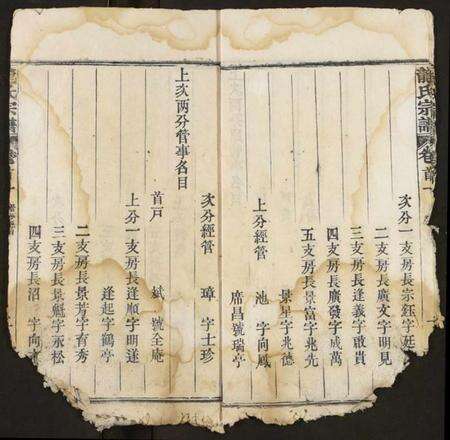 龍氏宗譜 卷首一
次分一支房長示鈺字廷
二支房長廣文字明見
三支房長達義字敢貴
四支房長廣發字成萬
五支房長景富字兆先
景星字兆德
上分經管 池 字向鳳
席昌號瑞亭
上次两分管事名目
次分經管 璋 字士珍
首戸 斌 號全庵
上分一支房長達順字明遂
達起字鶴亭
二支房長景芳字育秀
三支房長景魁字永松
四支房長沼 字向
氏宗譜